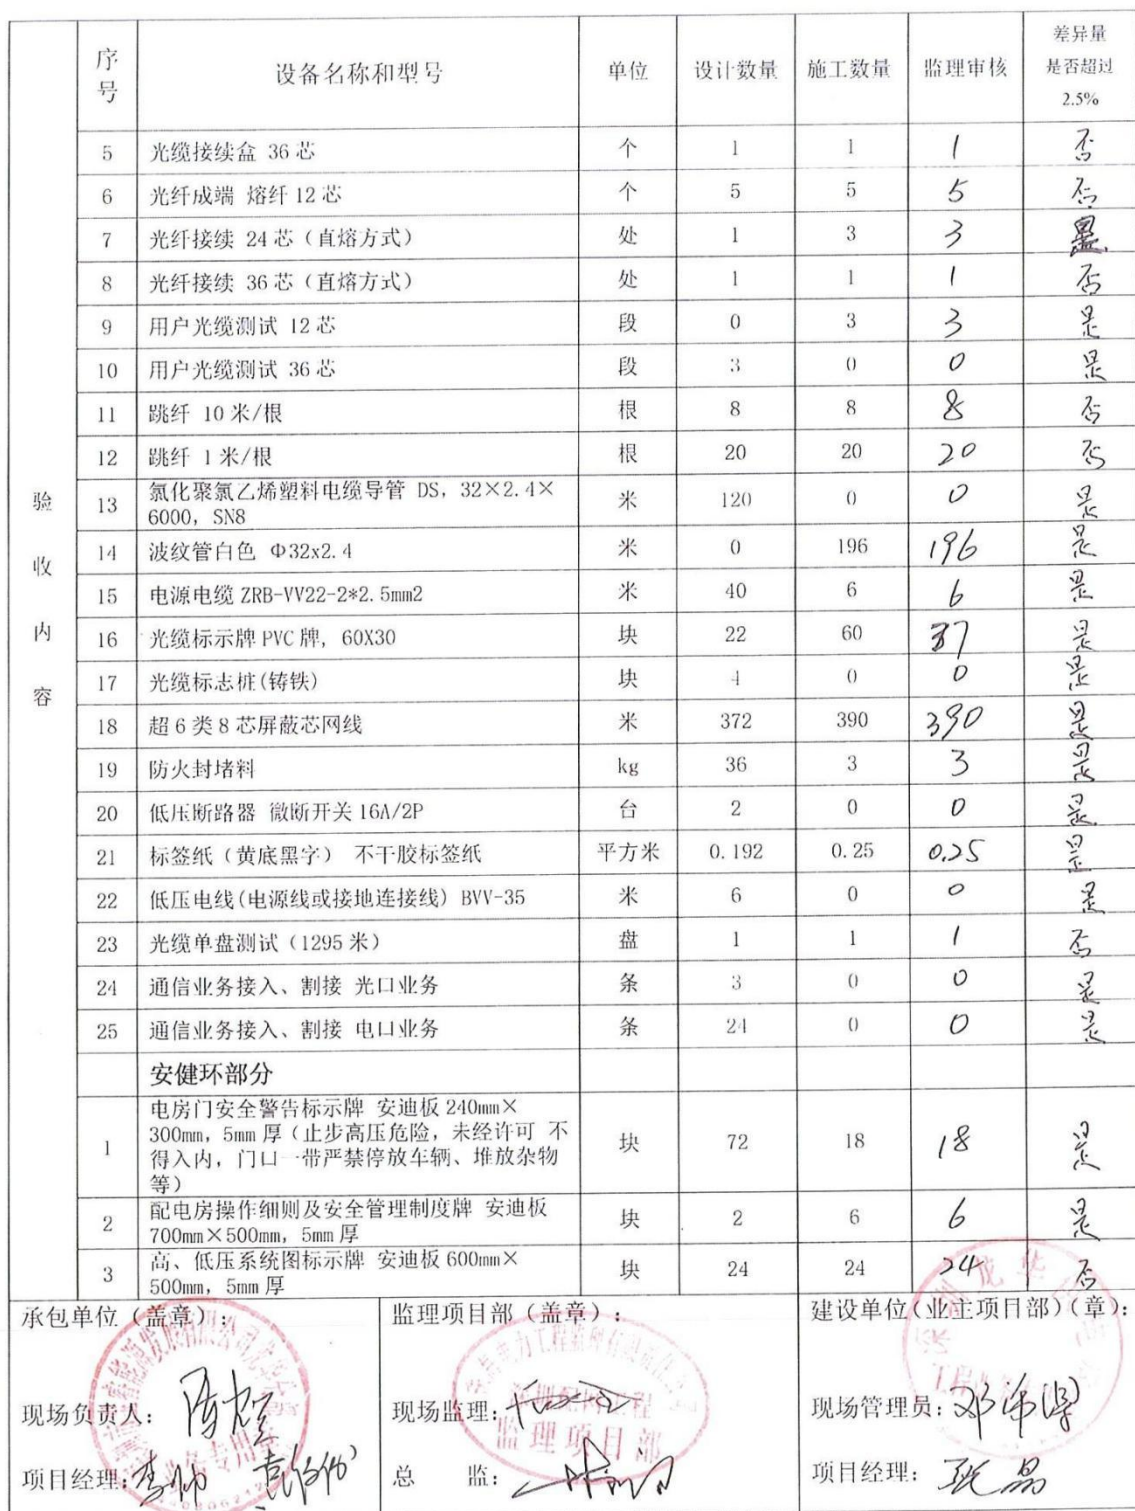 序号 设备名称和型号 单位 设计数量 施工数量 监理审核 差异量是否超过2.5%
验收内容
5 光缆接续盒 36芯 个 1 1 1 否
6 光纤成端 熔纤12芯 个 5 5 5 否
7 光纤接续 24芯（直熔方式） 处 1 3 3 是
8 光纤接续 36芯（直熔方式） 处 1 1 1 否
9 用户光缆测试 12芯 段 0 3 3 是
10 用户光缆测试 36芯 段 3 0 0 是
11 跳纤 10米/根 根 8 8 8 否
12 跳纤 1米/根 根 20 20 20 否
13 氯化聚氯乙烯塑料电缆导管 DS，32×2.4×
6000，SN8 米 120 0 0 是
14 波纹管白色 Φ32x2.4 米 0 196 196 是
15 电源电缆 ZRB-VV22-2*2.5mm2 米 40 6 6 是
16 光缆标示牌 PVC牌，60X30 块 22 60 37 是
17 光缆标志桩(铸铁) 块 4 0 0 是
18 超6类8芯屏蔽芯网线 米 372 390 390 是
19 防火封堵料 kg 36 3 3 是
20 低压断路器 微断开关16A/2P 台 2 0 0 是
21 标签纸（黄底黑字） 不干胶标签纸 平方米 0.192 0.25 0.25 是
22 低压电线(电源线或接地连接线) BVV-35 米 6 0 0 是
23 光缆单盘测试（1295米） 盘 1 1 1 否
24 通信业务接入、割接 光口业务 条 3 0 0 是
25 通信业务接入、割接 电口业务 条 24 0 0 是
安健环部分
1 电房门安全警告标示牌 安迪板 240mm×
300mm，5mm厚（止步高压危险，未经许可 不
得入内，门口一带严禁停放车辆、堆放杂物
等） 块 72 18 18 是
2 配电房操作细则及安全管理制度牌 安迪板
700mm×500mm，5mm厚 块 2 6 6 是
3 高、低压系统图标示牌 安迪板 600mm×
500mm，5mm厚 块 24 24 24 否
承包单位（盖章）： 监理项目部（盖章）： 建设单位(业主项目部)(章)：
现场负责人： 现场监理： 现场管理员：
监理项目部
项目经理：李帅 总 监： 项目经理：